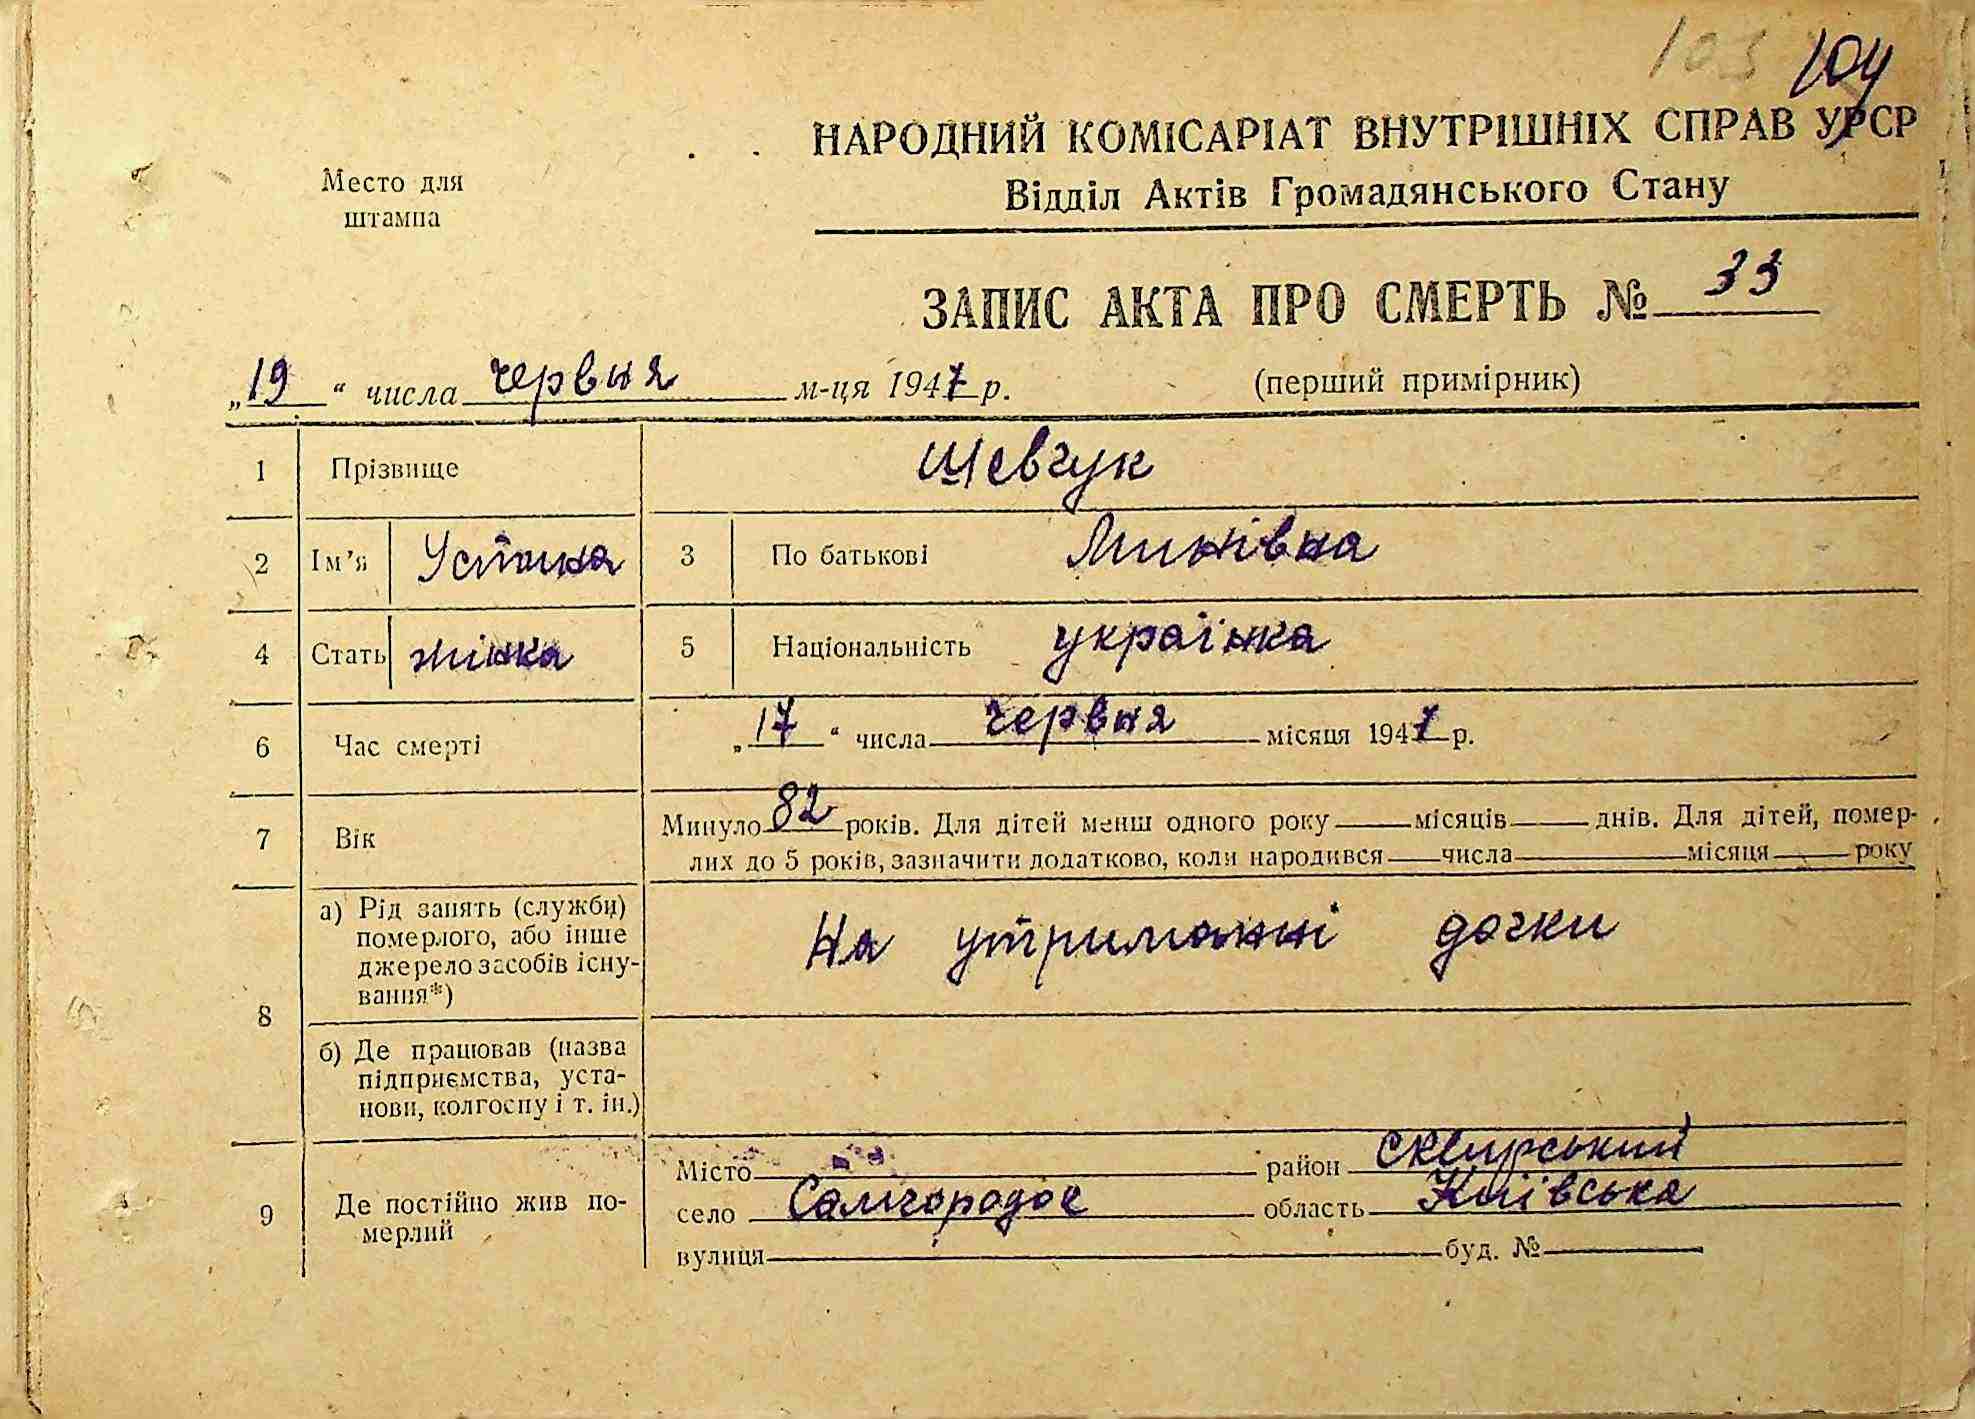 103 104
НАРОДНИЙ КОМІСАРІАТ ВНУТРІШНІХ СПРАВ УРСР
Место для
штампа
Відділ Актів Громадянського Стану
ЗАПИС АКТА ПРО СМЕРТЬ № 33
„19“ числа червня м-ця 1947 р. (перший примірник)
1 Прізвище Шевчук
2 Ім’я Устина 3 По батькові Минівна
4 Стать жінка 5 Національність українка
6 Час смерті „17“ числа червня місяця 1947 р.
7 Вік Минуло 82 років. Для дітей менш одного року місяців днів. Для дітей, помер-
лих до 5 років, зазначити додатково, коли народився числа місяця року
8 а) Рід занять (служби)
померлого, або інше
джерело засобів існу-
вання*)
На утриманні дочки
б) Де працював (назва
підприємства, уста-
нови, колгоспу і т. ін.)
9 Де постійно жив по-
мерлий
Місто район Сквирський
село Самгородок область Київська
вулиця буд. №